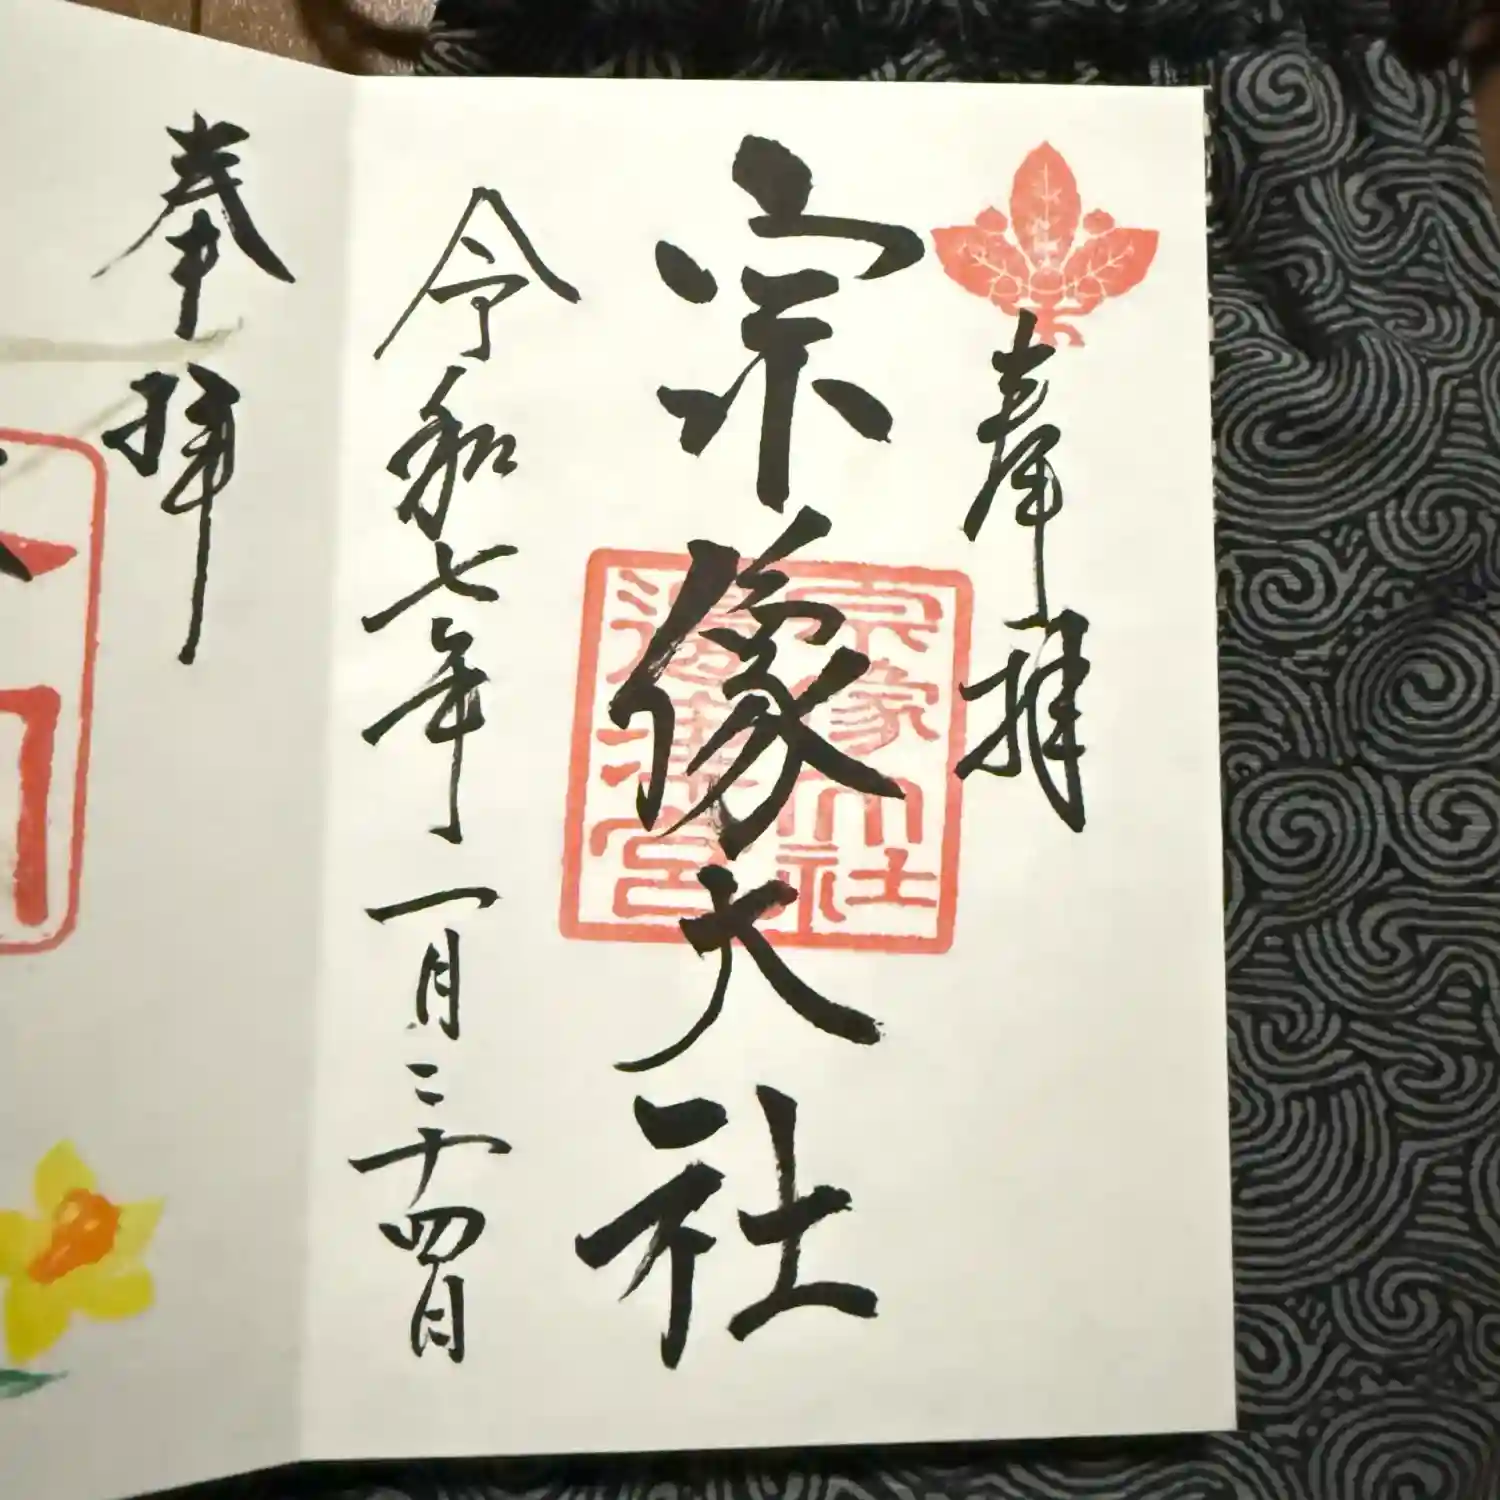 奉拝
宗像大社
宗像大社
邉津宮
令和七年一月二十四日
奉拝